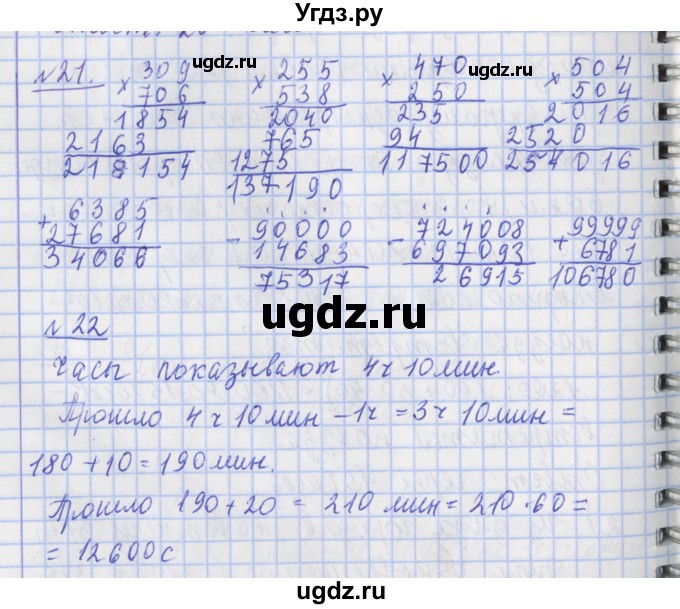 Угдз.ру
№21.
× 309
706
1854
2163
218154
× 255
538
2040
765
1275
137190
× 470
250
235
94
117500
× 504
504
2016
2520
254016
+ 6385
27681
34066
- 90000
14683
75317
- 724008
697093
26915
99999
+ 6781
106780
№22
Часы показывают 4ч 10мин.
Прошло 4ч 10мин - 1ч = 3ч 10мин =
180 + 10 = 190мин.
Прошло 190 + 20 = 210 мин = 210 · 60 =
= 12600с
ugdz.ru
ugdz.ru
ugdz.ru
ugdz.ru
ugdz.ru
ugdz.ru